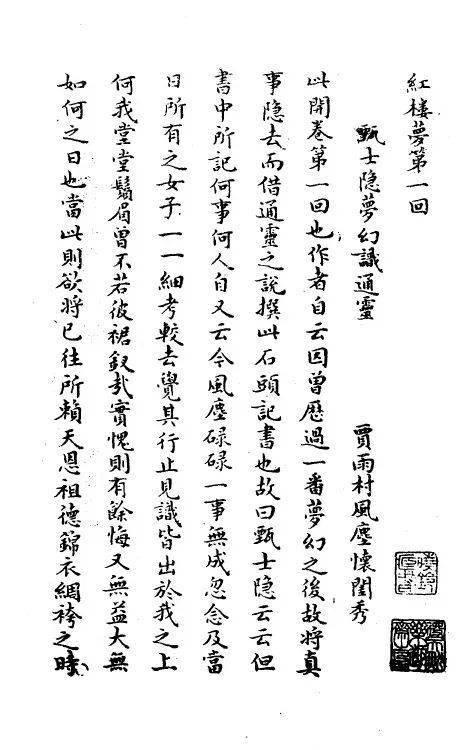 紅樓夢第一回
甄士隐夢幻識通靈　賈雨村風塵懷閨秀
此開卷第一回也作者自云因曾歷過一番夢幻之後故將真
事隐去而借通靈之說撰此石頭記書也故曰甄士隐云云但
書中所記何事何人自又云今風塵碌碌一事無成忽念及當
日所有之女子一一細考較去覺其行止見識皆出於我之上
何我堂堂鬚眉曾不若彼裙釵哉實愧則有餘悔又無益大無
如何之日也當此則欲將已往所賴天恩祖德錦衣綢袴之時